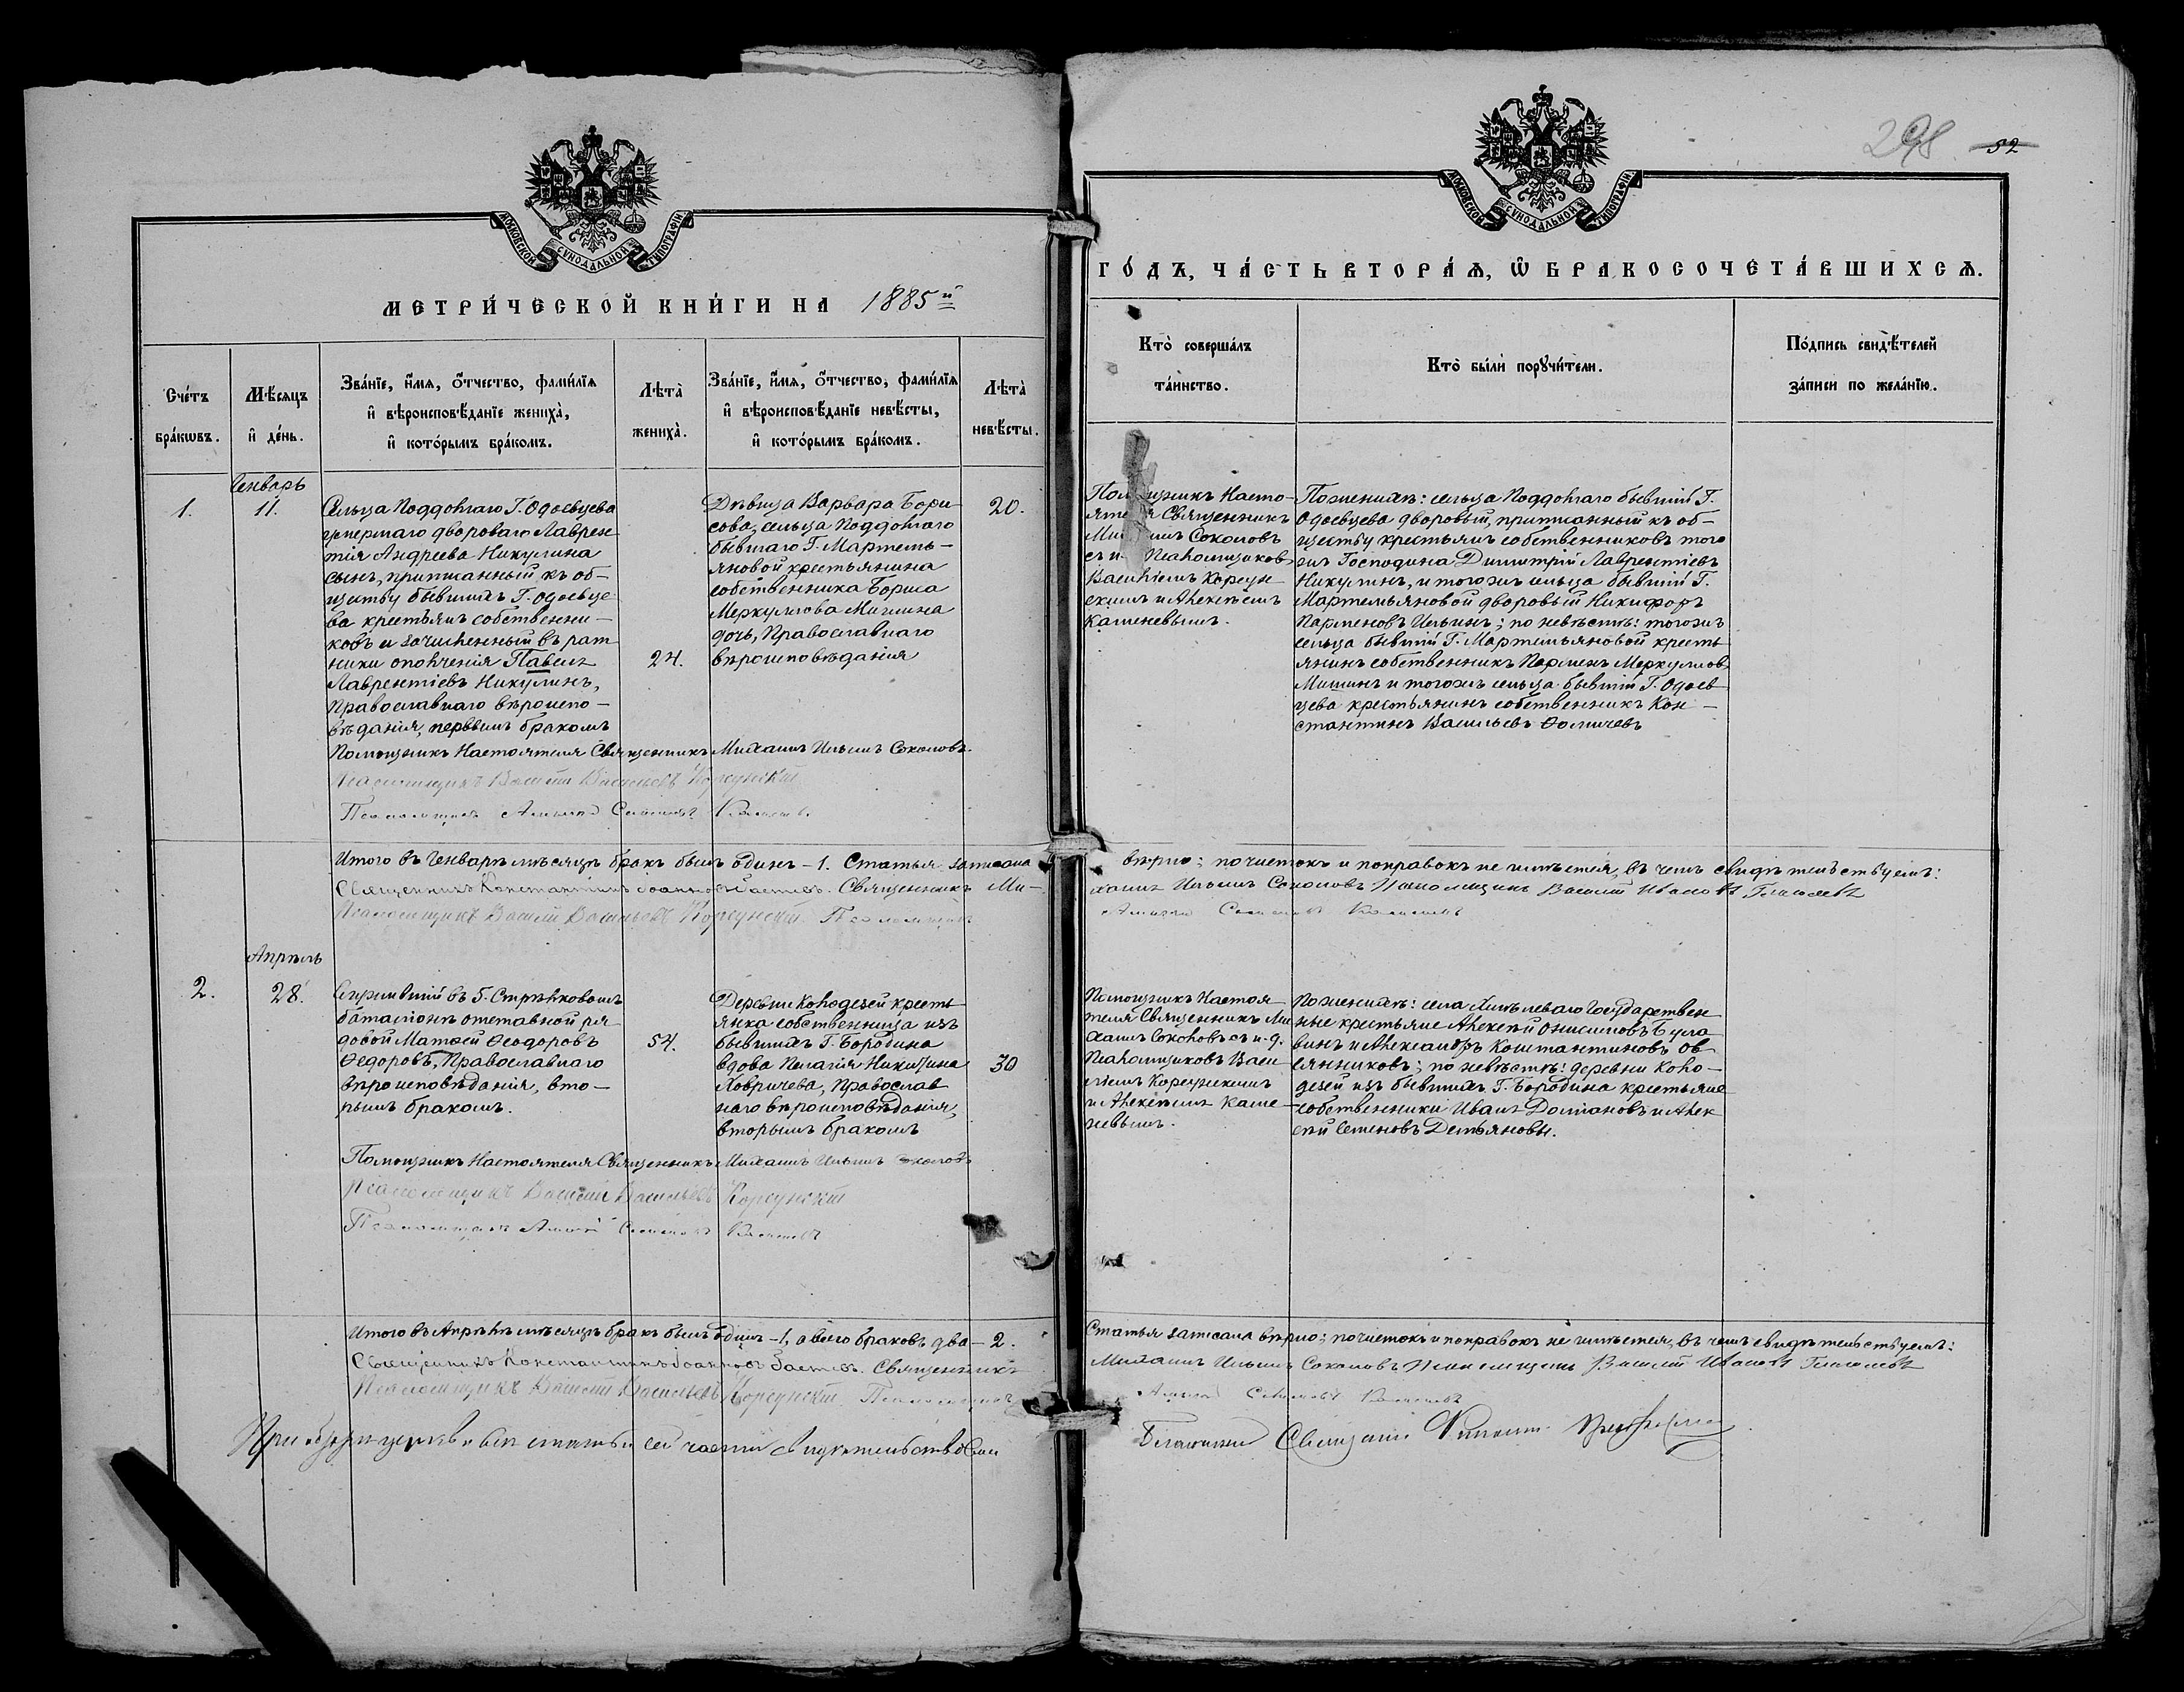 298 52
МОСКОВСКОЙ СУНОДАЛЬНОЙ ТИПОГРАФІИ
МОСКОВСКОЙ СУНОДАЛЬНОЙ ТИПОГРАФІИ
МЕТРИ́ЧЕСКОЙ КНИ́ГИ НА 1885й
ГО́ДЪ, ЧА́СТЬ ВТОРА́Ѧ, Ѡ БРАКОСОЧЕТА́ВШИХСѦ.
Сче́тъ
бра́кѡвъ.
Мѣ́сяцъ
и де́нь.
Зва́нїе, и́мя, о́тчество, фами́лїя
и вѣроисповѣ́данїе жениха̀,
и кото́рымъ бра́комъ.
Лѣта̀
жениха̀.
Зва́нїе, и́мя, о́тчество, фами́лїя
и вѣроисповѣ́данїе невѣ́сты,
и кото́рымъ бра́комъ.
Лѣта̀
невѣ́сты.
Кто̀ соверша́лъ
та́инство.
Кто̀ бы́ли порꙋчи́тели.
По́дпись свидѣ́телей
за́писи по жела́нїю.
1.
Генварь
11.
Сельца Поддолгаго Г. Одоевцева
умершаго двороваго Лаврен
тія Андреева Никулина
сынъ, приписанный къ об-
ществу бывшихъ Г. Одоевце
ва крестьянъ собственни-
ковъ и зачисленный въ рат
ники ополченія Павелъ
Лаврентіевъ Никулинъ,
Православнаго вѣроиспо-
вѣданія, первымъ бракомъ
24.
Дѣвица Варвара Бори
сова, сельца Поддолгаго
бывшаго Г. Мартемь-
яновой крестьянина
собственника Бориса
Меркулова Мишина
дочь, Православнаго
вѣроисповѣданія
20.
Помощникъ Насто-
ятеля Священникъ
Михаилъ Соколовъ
съ и. Псаломщиков
Василіемъ Корсун
скимъ и Алексѣемъ
Каменевымъ.
По женихѣ: сельца Поддолгаго бывшій Г.
Одоевцева дворовый, приписанный къ об-
ществу крестьянъ собственниковъ того
жъ Господина Димитрій Лаврентіевъ
Никулинъ, и тогожъ сельца бывшій Г.
Мартемьяновой дворовый Никифоръ
Парменовъ Ильинъ; по невѣстѣ: тогожъ
сельца бывшій Г. Мартемьяновой кресть
янинъ собственникъ Парменъ Меркуловъ
Мишинъ и тогожъ сельца бывшій Г. Одоев
цева крестьянинъ собственникъ Кон-
стантинъ Васильевъ Ѳомичевъ
Помощникъ Настоятеля Священникъ Михаилъ Ильинъ Соколовъ.
Псаломщикъ Василій Васильевъ Корсунскій
Псаломщикъ Алексѣй Каменевъ.
Итого въ Генварѣ мѣсяцѣ бракъ былъ одинъ - 1. Статья записана
вѣрно; почистокъ и поправокъ не имѣется, въ чемъ свидѣтельствуемъ:
Священникъ Константинъ Іоанновъ Священникъ Ми-
хаилъ Ильинъ Соколовъ Псаломщикъ Василій Ивановъ
Псаломщикъ Василій Васильевъ Корсунскій. Псаломщикъ
Алексѣй Каменевъ
2.
Апрѣль
28.
Служившій въ 5. Стрѣлковомъ
баталіонѣ отставной ря
довой Матѳей Ѳеодоровъ
Ѳедоровъ, Православнаго
вѣроисповѣданія, вто-
рымъ бракомъ.
54.
Деревни Колодезей кресть
янка собственница изъ
бывшихъ Г. Бородина
вдова Пелагія Никитина
Лавричева, Православ
наго вѣроисповѣданія,
вторымъ бракомъ
30
Помощникъ Настоя
теля Священникъ Ми
хаилъ Соколовъ съ и. д.
Псаломщиковъ Васи
ліемъ Корсунскимъ
и Алексѣемъ Каме-
невымъ.
По женихѣ: села Хмѣлеваго Государствен
ные крестьяне Алексѣй Онисимовъ Була
винъ и Александръ Константиновъ Ов
сянниковъ; по невѣстѣ: деревни Коло-
дезей изъ бывшихъ Г. Бородина крестьяне
собственники Иванъ Доміановъ и Алек
сѣй Семеновъ Демьяновы.
Помощникъ Настоятеля Священникъ Михаилъ Ильинъ Соколовъ
Псаломщикъ Василій Васильевъ Корсунскій
Псаломщикъ Алексѣй Каменевъ
Итого въ Апрѣлѣ мѣсяцѣ бракъ былъ одинъ - 1, а всего браковъ два - 2.
Статья записана вѣрно; почистокъ и поправокъ не имѣется, въ чемъ свидѣтельствуемъ:
Священникъ Константинъ Іоанновъ Священникъ
Михаилъ Ильинъ Соколовъ Псаломщикъ Василій Ивановъ
Псаломщикъ Василій Васильевъ Корсунскій. Псаломщикъ
Алексѣй Каменевъ
При обзорѣ церкви всѣ статьи сей части свидѣтельствовалъ
Благочинный Священникъ